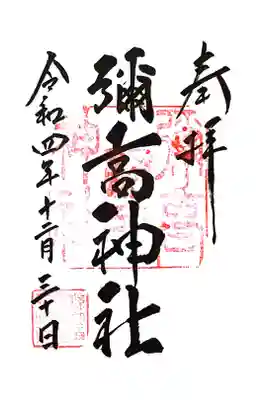 奉拝
彌高神社
令和四年十二月三十日